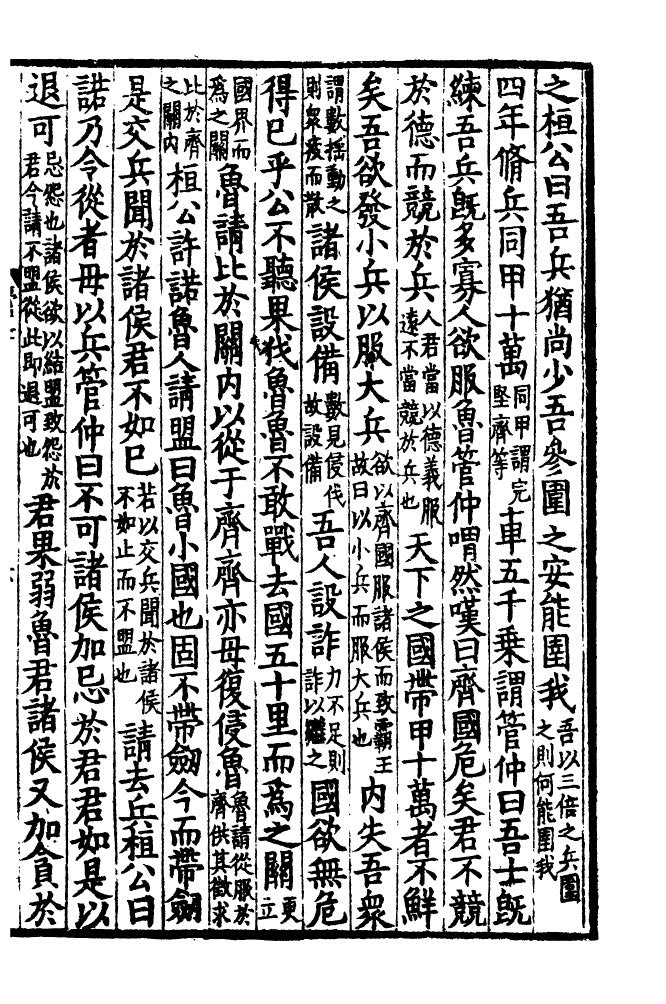 之桓公曰吾兵猶尚少吾參圍之安能圍我吾以三倍之兵圍之則何能圍我
四年脩兵同甲十萬同甲謂完堅齊等車五千乗謂管仲曰吾士旣
練吾兵旣多寡人欲服魯管仲喟然嘆曰齊國危矣君不競
於德而競於兵人君當以德義服遠不當競於兵也天下之國帶甲十萬者不鮮
矣吾欲發小兵以服大兵欲以齊國服諸侯而致霸王故曰以小兵而服大兵也內失吾衆
謂數揺動之則衆疲而散諸侯設備數見侵伐故設備吾人設詐力不足則詐以繼之國欲無危
得已乎公不聽果伐魯魯不敢戰去國五十里而爲之關更立
國界而爲之關魯請比於關内以從于齊齊亦毋復侵魯魯請從服於齊供其徵求
比於齊之關内桓公許諾魯人請盟曰魯小國也固不帶劒今而帶劒
是交兵聞於諸侯君不如已若以交兵聞於諸侯不如止而不盟也請去兵桓公曰
諾乃令從者毋以兵管仲曰不可諸侯加忌於君君如是以
退可忌怨也諸侯欲以結盟致怨於君今請不盟從此即退可也君果弱魯君諸侯又加貪於